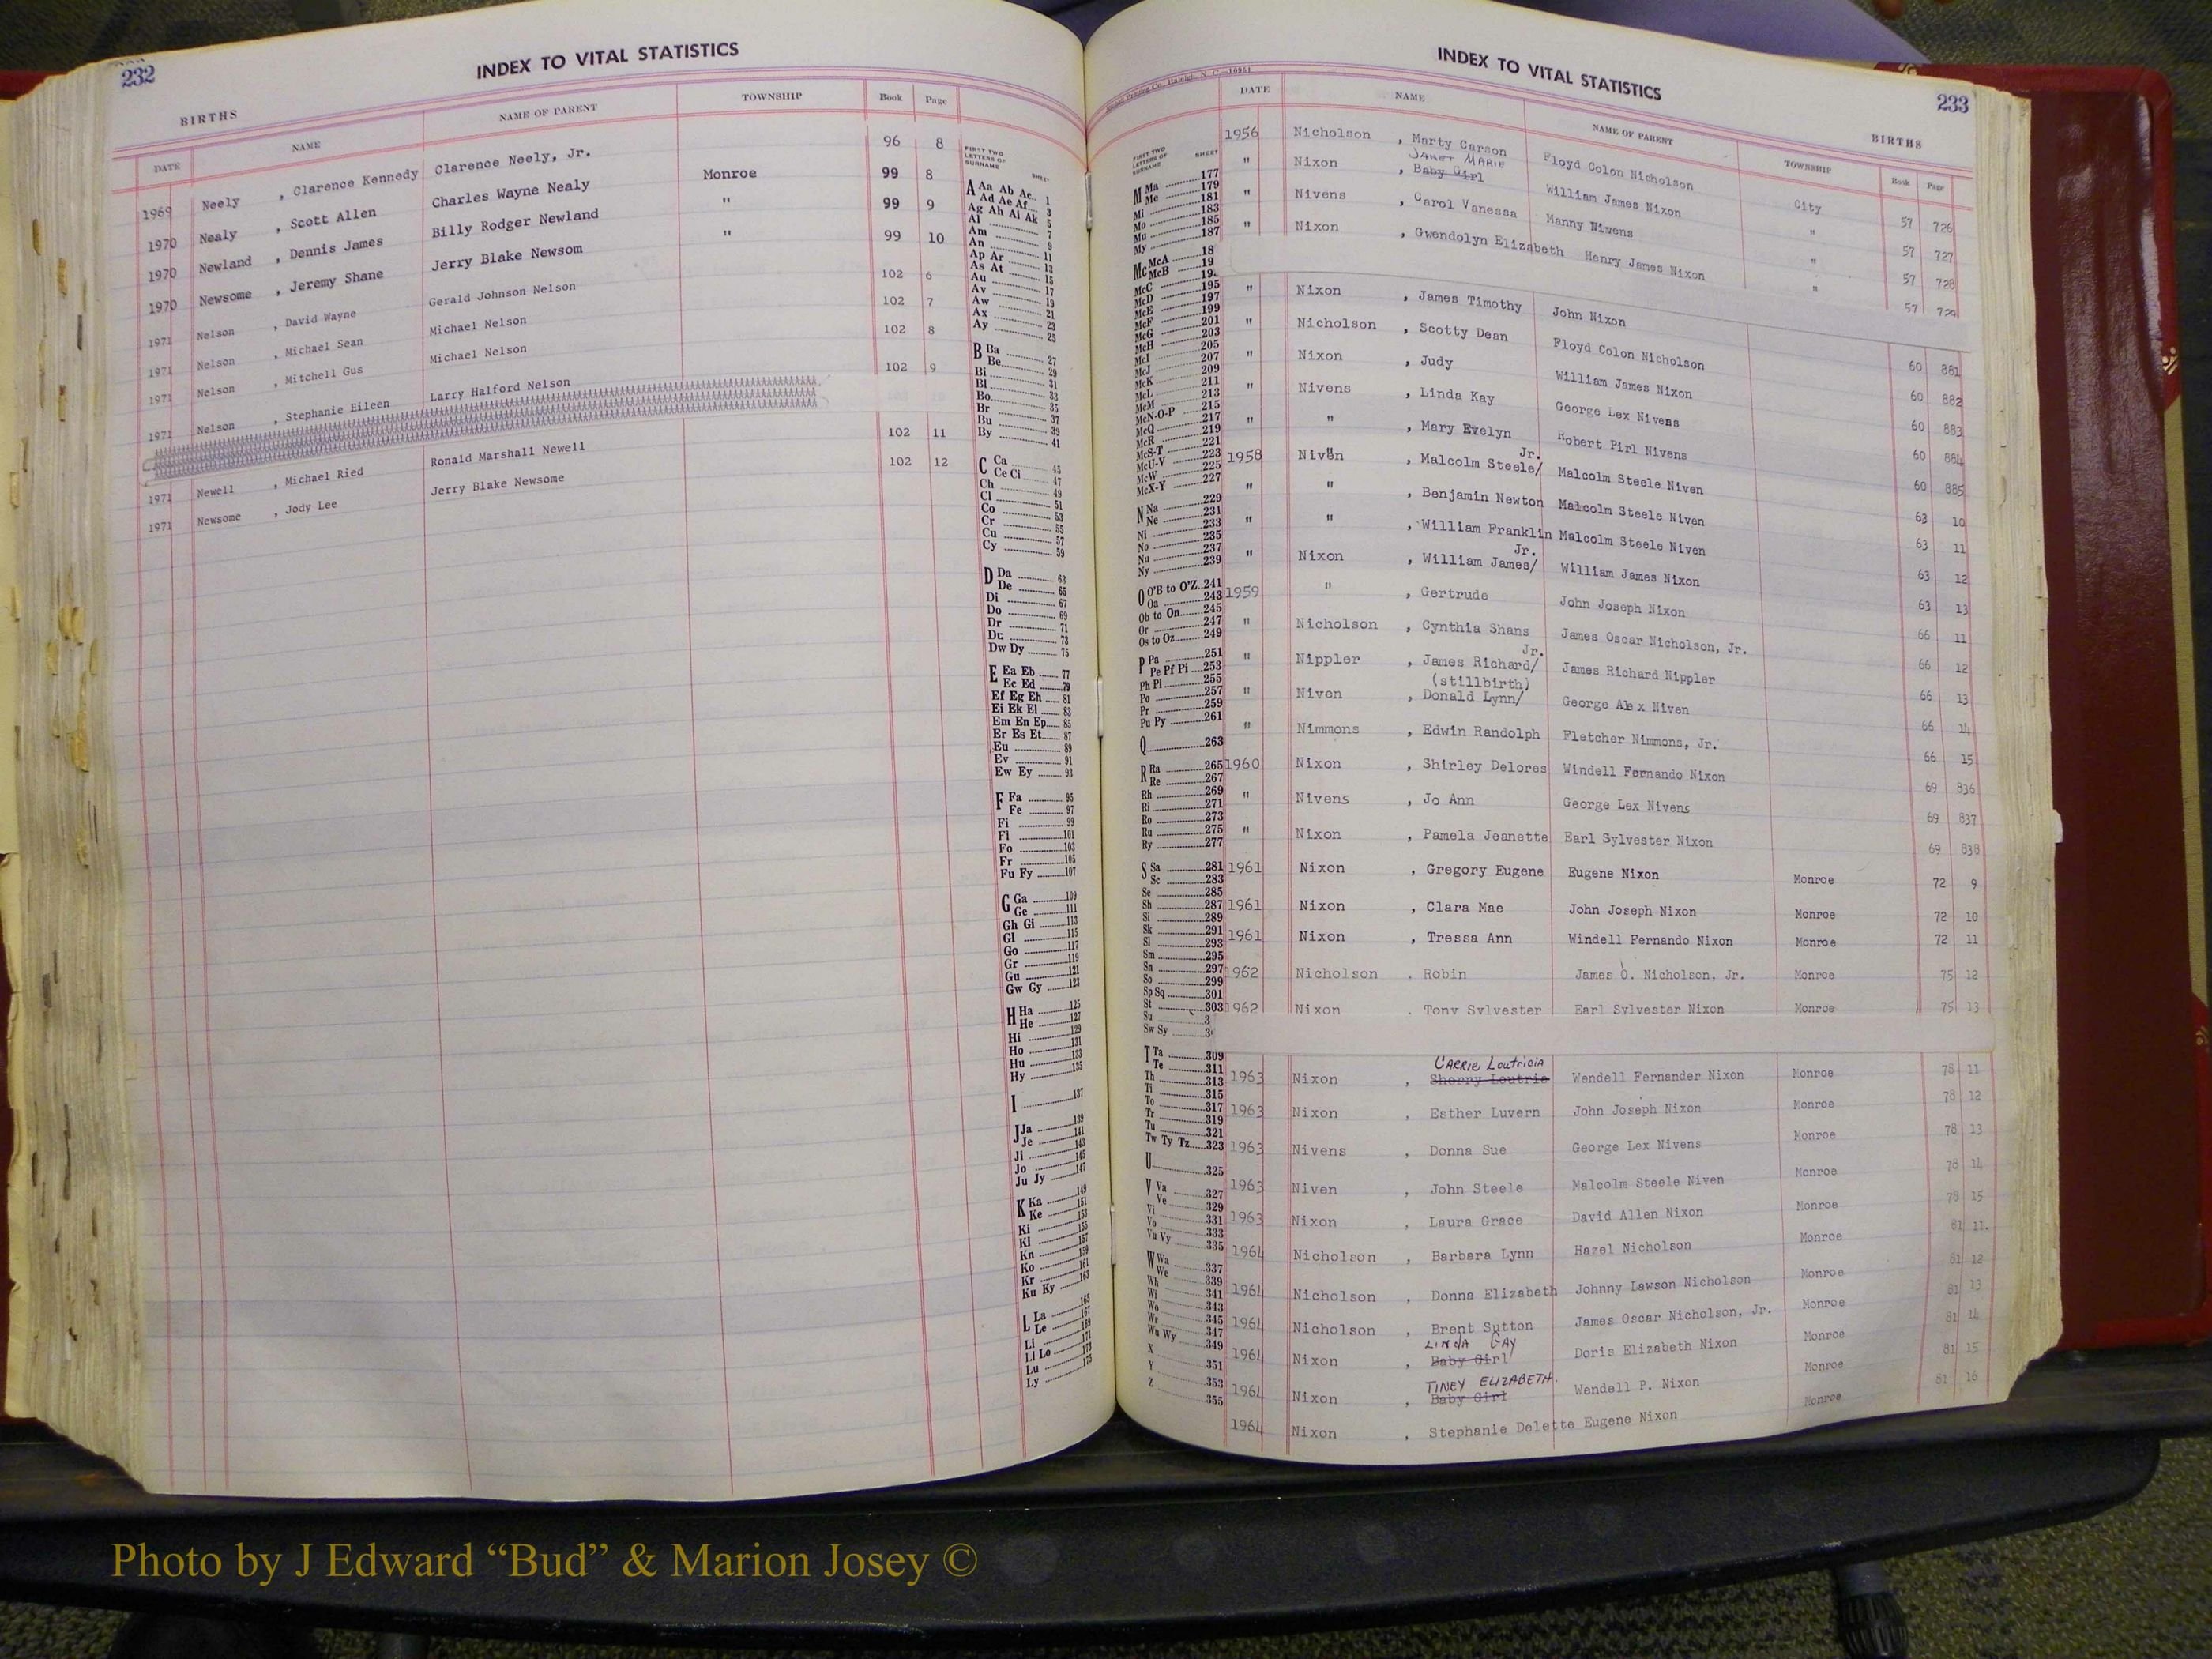 232
INDEX TO VITAL STATISTICS
BIRTHS
DATE NAME NAME OF PARENT TOWNSHIP Book Page
1969 Neely , Clarence Kennedy Clarence Neely, Jr. 96 8
1970 Nealy , Scott Allen Charles Wayne Nealy Monroe 99 8
1970 Newland , Dennis James Billy Rodger Newland " 99 9
1970 Newsome , Jeremy Shane Jerry Blake Newsom " 99 10
1971 Nelson , David Wayne Gerald Johnson Nelson 102 6
1971 Nelson , Michael Sean Michael Nelson 102 7
1971 Nelson , Mitchell Gus Michael Nelson 102 8
1971 Nelson , Stephanie Eileen Larry Halford Nelson 102 9
1971 Newell , Michael Ried Ronald Marshall Newell 102 11
1971 Newsome , Jody Lee Jerry Blake Newsome 102 12
FIRST TWO LETTERS OF SURNAME SHEET
A Aa Ab Ac 1
Ad Ae Af 3
Ag Ah Ai Ak 5
Al 7
Am 9
An 11
Ap Ar 13
As At 15
Au 17
Av 19
Aw 21
Ax 23
Ay 25
B Ba 27
Be 29
Bi 31
Bl 33
Bo 35
Br 37
Bu 39
By 41
C Ca 45
Ce Ci 47
Ch 49
Cl 51
Co 53
Cr 55
Cu 57
Cy 59
D Da 63
De 65
Di 67
Do 69
Dr 71
Du 73
Dw Dy 75
E Ea Eb 77
Ec Ed 79
Ef Eg Eh 81
Ei Ek El 83
Em En Ep 85
Er Es Et 87
Eu 89
Ev 91
Ew Ey 93
F Fa 95
Fe 97
Fi 99
Fl 101
Fo 103
Fr 105
Fu Fy 107
G Ga 109
Ge 111
Gh Gi 113
Gl 115
Go 117
Gr 119
Gu 121
Gw Gy 123
H Ha 125
He 127
Hi 129
Ho 131
Hu 133
Hy 135
I 137
J Ja 139
Je 141
Ji 143
Jo 145
Ju Jy 147
K Ka 149
Ke 151
Ki 153
Kl 155
Kn 157
Ko 159
Kr 161
Ku Ky 163
L La 165
Le 167
Li 169
Ll Lo 171
Lu 173
Ly 175
INDEX TO VITAL STATISTICS
233
BIRTHS
DATE NAME NAME OF PARENT TOWNSHIP Book Page
FIRST TWO LETTERS OF SURNAME SHEET
M Ma 177
Me 179
Mi 181
Mo 183
Mu 185
My 187
Mc McA 18
McB 19
McC 19
McD 195
McE 197
McF 199
McG 201
McH 203
McI 205
McJ 207
McK 209
McL 211
McM 213
McN-O-P 215
McQ 217
McR 219
McS-T 221
McU-V 223
McW 225
McX-Y 227
N Na 229
Ne 231
Ni 233
No 235
Nu 237
Ny 239
O O'B to O'Z 241
Oa 243
Ob to On 245
Or 247
Os to Oz 249
P Pa 251
Pe Pf Pi 253
Ph Pl 255
Po 257
Pr 259
Pu Py 261
Q 263
R Ra 265
Re 267
Rh 269
Ri 271
Ro 273
Ru 275
Ry 277
S Sa 281
Sc 283
Se 285
Sh 287
Si 289
Sk 291
Sl 293
Sm 295
Sn 297
So 299
Sp Sq 301
St 303
Su 3
Sw Sy 3
T Ta 309
Te 311
Th 313
Ti 315
To 317
Tr 319
Tu 321
Tw Ty Tz 323
U 325
V Va 327
Ve 329
Vi 331
Vo 333
Vu Vy 335
W Wa 337
We 339
Wh 341
Wi 343
Wo 345
Wr 347
Wu Wy 349
X 351
Y 353
Z 355
1956 Nicholson , Marty Carson Floyd Colon Nicholson City 57 726
JANET MARIE
" Nixon , Baby Girl William James Nixon " 57 727
" Nivens , Carol Vanessa Manny Nivens " 57 728
" Nixon , Gwendolyn Elizabeth Henry James Nixon " 57 729
" Nixon , James Timothy John Nixon 60 881
" Nicholson , Scotty Dean Floyd Colon Nicholson 60 882
" Nixon , Judy William James Nixon 60 883
" Nivens , Linda Kay George Lex Nivens 60 884
" " , Mary Evelyn Robert Pirl Nivens 60 885
1958 Niven , Malcolm Steele/ Jr. Malcolm Steele Niven 63 10
" " , Benjamin Newton Malcolm Steele Niven 63 11
" " , William Franklin Malcolm Steele Niven 63 12
" Nixon , William James/ Jr. William James Nixon 63 13
1959 " , Gertrude John Joseph Nixon 66 11
" Nicholson , Cynthia Shans James Oscar Nicholson, Jr. 66 12
" Nippler , James Richard/ Jr. James Richard Nippler 66 13
(stillbirth)
" Niven , Donald Lynn/ George Alex Niven 66 14
" Nimmons , Edwin Randolph Fletcher Nimmons, Jr. 66 15
1960 Nixon , Shirley Delores Windell Fernando Nixon 69 836
" Nivens , Jo Ann George Lex Nivens 69 837
" Nixon , Pamela Jeanette Earl Sylvester Nixon 69 838
1961 Nixon , Gregory Eugene Eugene Nixon Monroe 72 9
1961 Nixon , Clara Mae John Joseph Nixon Monroe 72 10
1961 Nixon , Tressa Ann Windell Fernando Nixon Monroe 72 11
1962 Nicholson , Robin James O. Nicholson, Jr. Monroe 75 12
1962 Nixon , Tony Sylvester Earl Sylvester Nixon Monroe 75 13
CARRIE Loutricia
1963 Nixon , Sherry Loutria Wendell Fernander Nixon Monroe 78 11
1963 Nixon , Esther Luvern John Joseph Nixon Monroe 78 12
1963 Nivens , Donna Sue George Lex Nivens Monroe 78 13
1963 Niven , John Steele Malcolm Steele Niven Monroe 78 14
1963 Nixon , Laura Grace David Allen Nixon Monroe 78 15
1964 Nicholson , Barbara Lynn Hazel Nicholson Monroe 81 11.
1964 Nicholson , Donna Elizabeth Johnny Lawson Nicholson Monroe 81 12
1964 Nicholson , Brent Sutton James Oscar Nicholson, Jr. Monroe 81 13
LINDA GAY
1964 Nixon , Baby Girl Doris Elizabeth Nixon Monroe 81 14
TINEY ELIZABETH.
1964 Nixon , Baby Girl Wendell P. Nixon Monroe 81 15
1964 Nixon , Stephanie Delette Eugene Nixon Monroe 81 16
Photo by J Edward “Bud” & Marion Josey ©